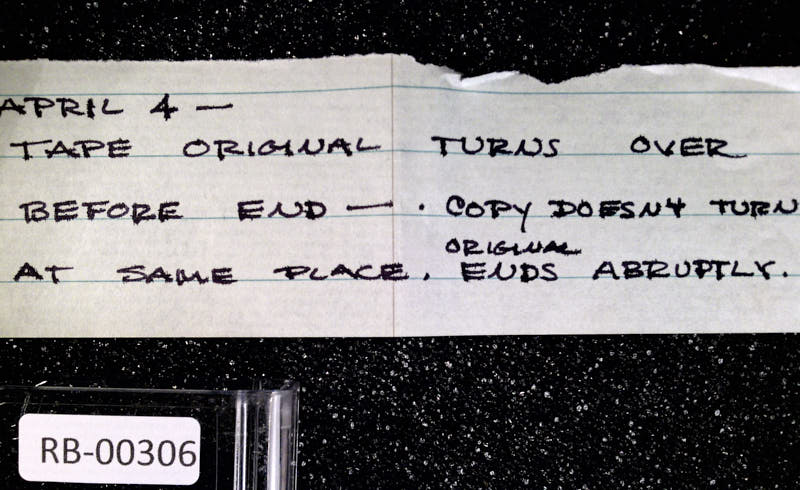 APRIL 4 —
TAPE ORIGINAL TURNS OVER
BEFORE END — . COPY DOESN'T TURN
ORIGINAL
AT SAME PLACE. ENDS ABRUPTLY.
RB-00306